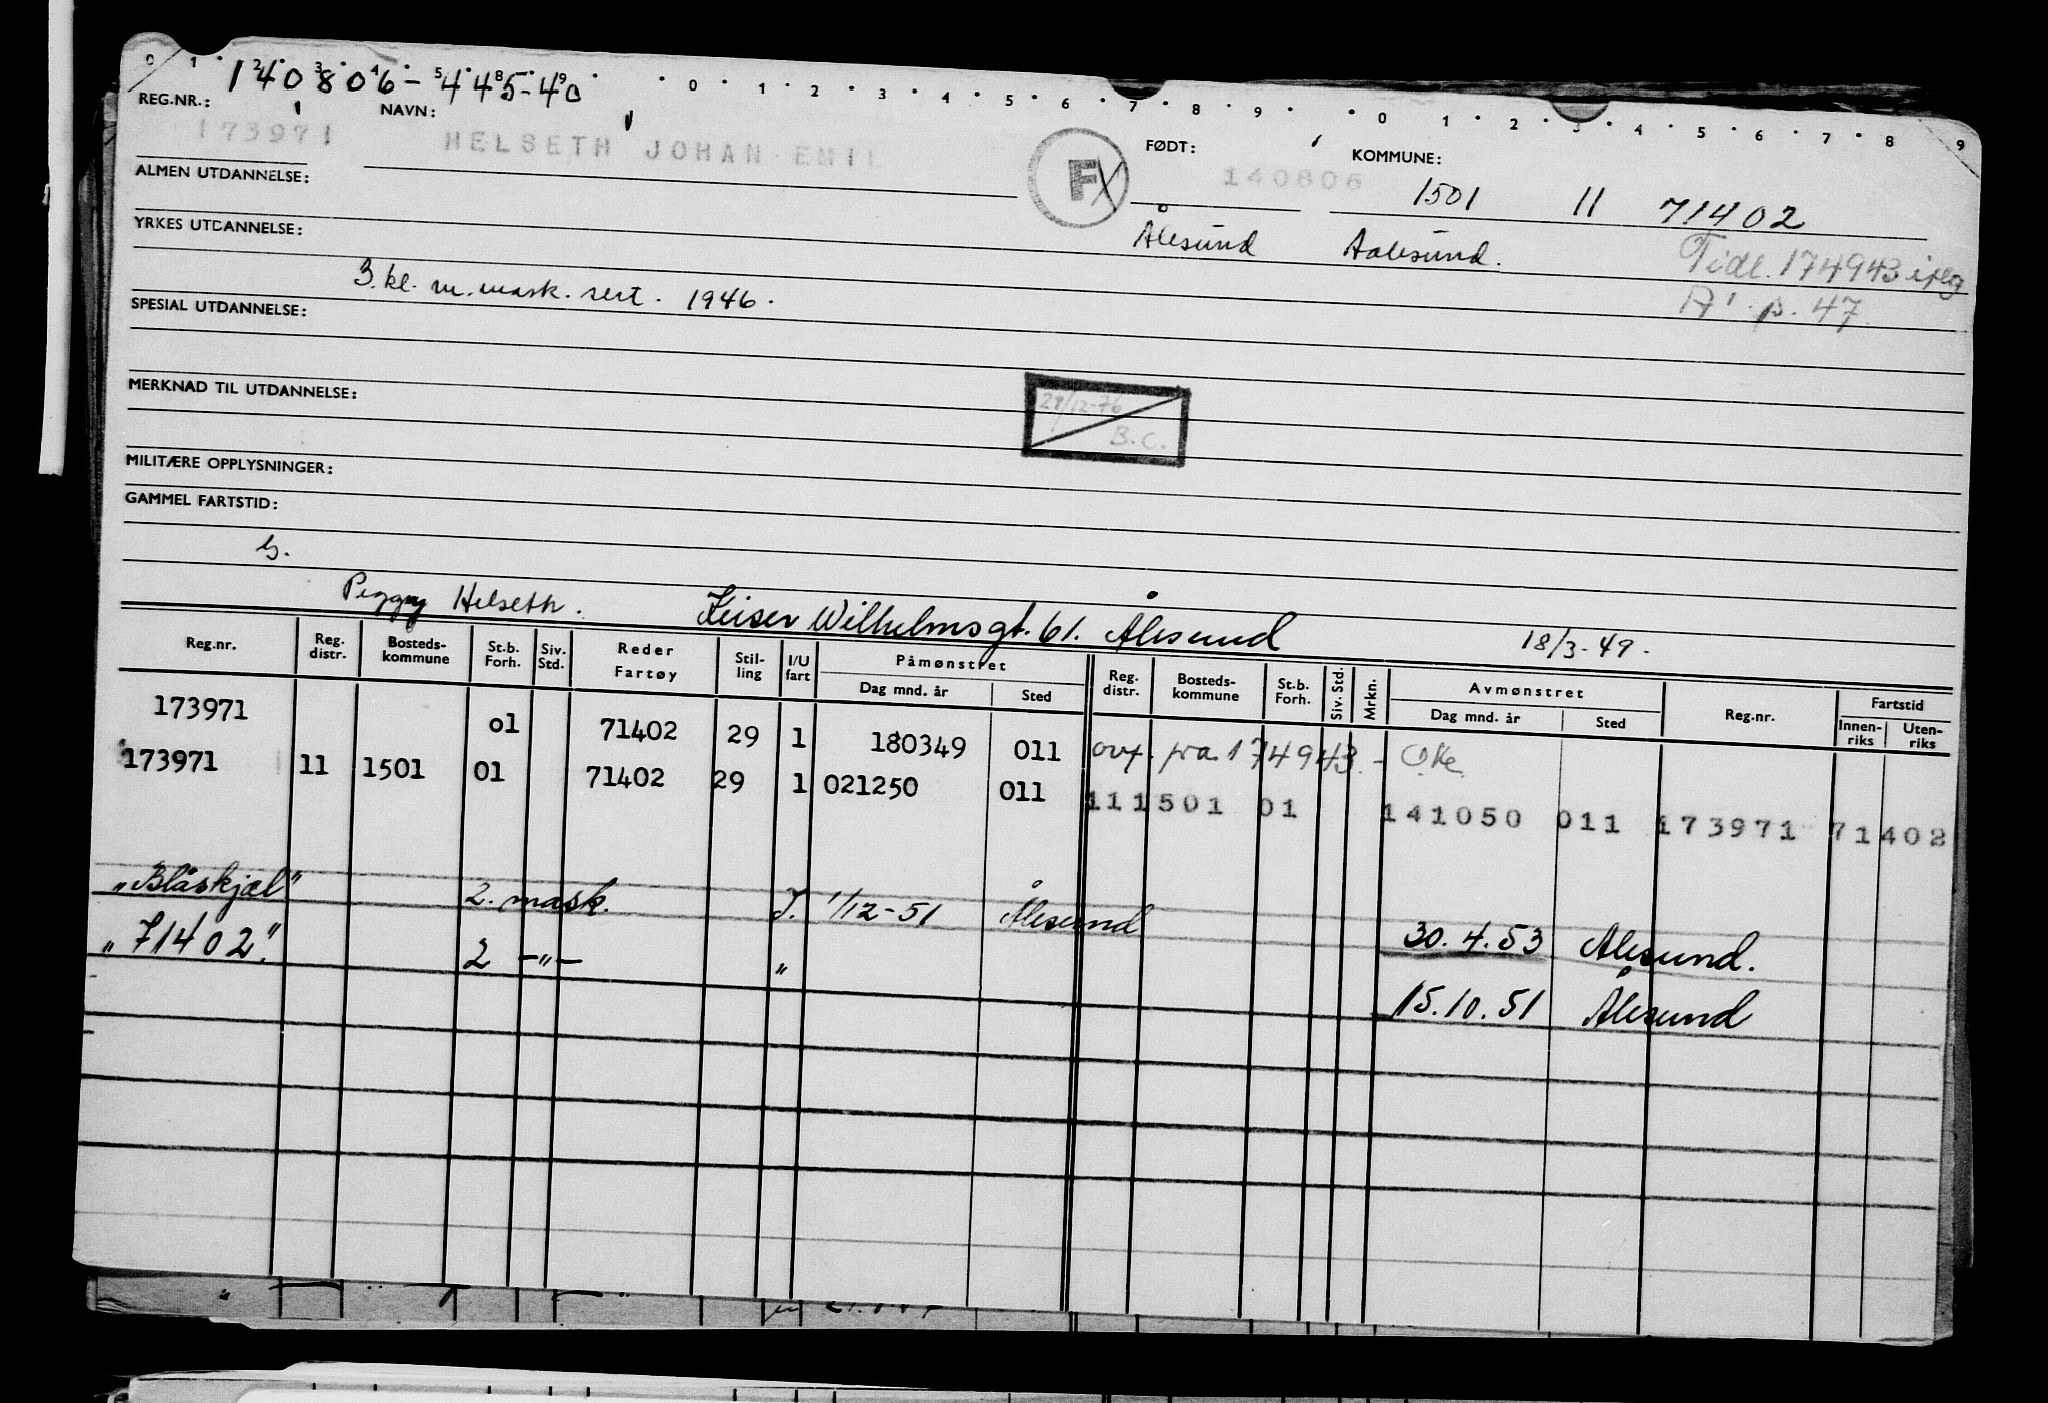 0 1 2 3 4 5 8 9 0 1 2 3 4 5 6 7 8 9 0 1 2 3 4 5 6 7 8 9
140806-445-40
REG.NR.: 173971 NAVN: HELSETH JOHAN EMIL F FØDT: 140806 KOMMUNE: 1501 11 71402
ALMEN UTDANNELSE: Ålesund Aalesund. Tidl. 174943 iflg
YRKES UTDANNELSE: A' p. 47.
3. kl. m. mask. sert. 1946.
SPESIAL UTDANNELSE:
MERKNAD TIL UTDANNELSE: 29/12-76
B.C.
MILITÆRE OPPLYSNINGER:
GAMMEL FARTSTID:
G.
Peggy Helseth. Keiser Wilhelmsgt. 61. Ålesund 18/3-49.
Reg.nr. Reg. distr. Bosteds-kommune St.b. Forh. Siv. Std. Reder Fartøy Stil-ling I/U fart Påmønstret Dag mnd. år Sted Reg. distr. Bosteds-kommune St.b. Forh. Siv. Std. Mrkn. Avmønstret Dag mnd. år Sted Reg.nr. Fartstid Innen-riks Uten-riks
173971 01 71402 29 1 180349 011 ovf. fra 174943. -
173971 11 1501 01 71402 29 1 021250 011 111501 01 141050 011 173971 71402
"Blåskjæl" 2. mask. I. 1/12-51 Ålesund 30.4.53 Ålesund.
"71402." 2 -"- " 15.10.51 Ålesund